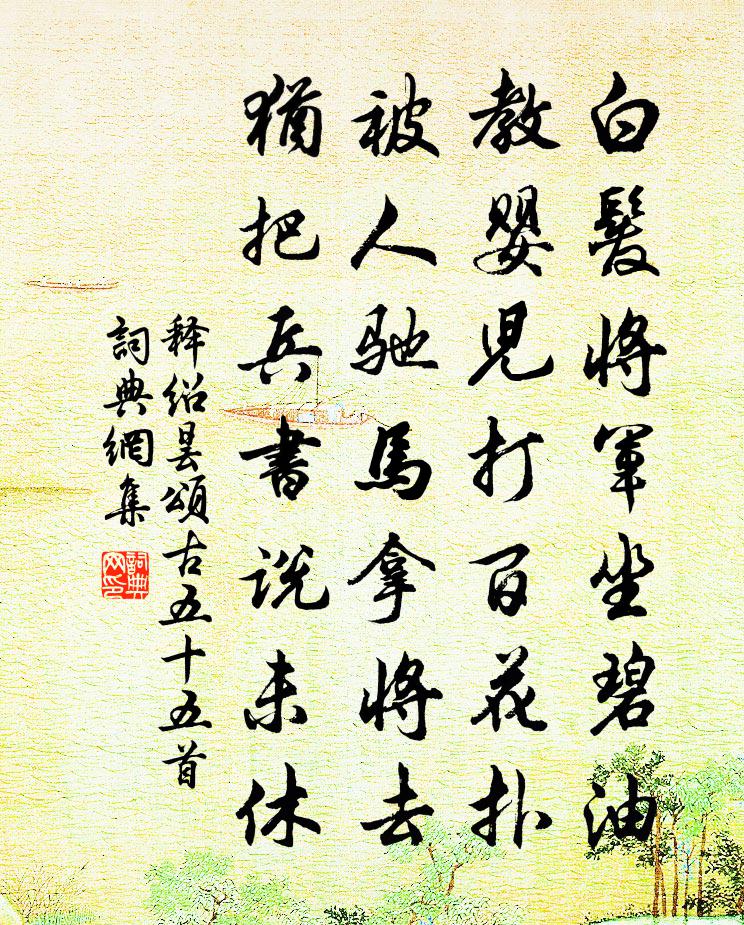 白髮將軍坐碧油
教嬰児打百花扑
被人馳馬拿將去
猶把兵書説未休
释绍昙頌古五十五首
詞典網集
詞典
网印